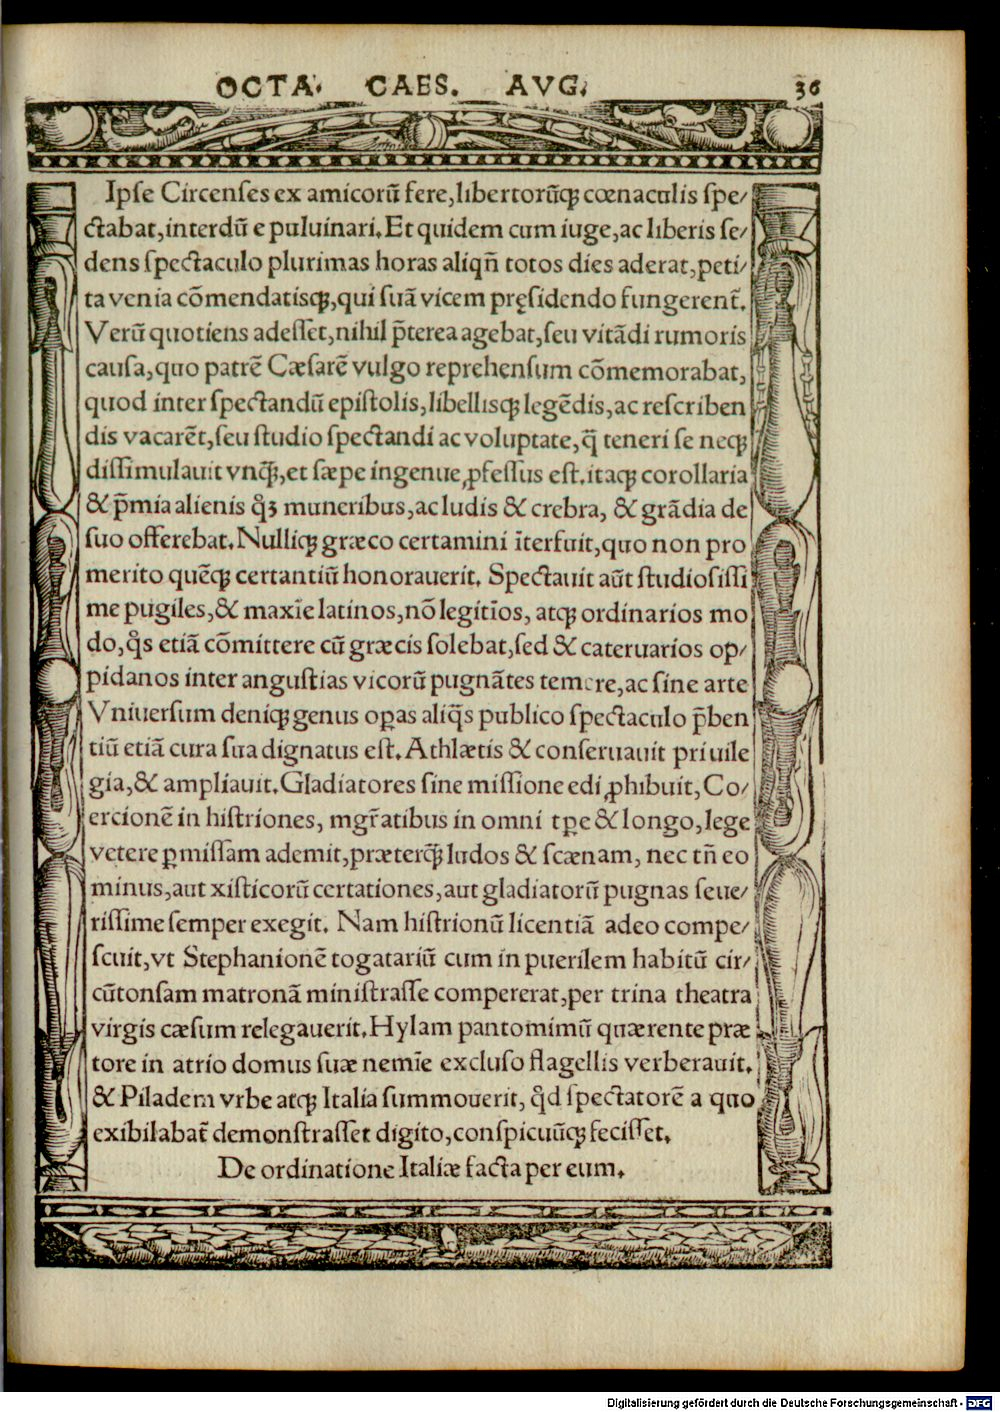 OCTA. CAES. AVG. 36
Ipſe Circenſes ex amicorũ fere,libertorũqꝫ cœnaculis ſpe/
ctabat,interdũ e puluinari.Et quidem cum iuge,ac liberis ſe/
dens ſpectaculo plurimas horas aliqñ totos dies aderat,peti/
ta venia cõmendatisqꝫ,qui ſuã vicem pręſidendo fungerent̃.
Verũ quotiens adeſſet,nihil p̃terea agebat,ſeu vitãdi rumoris
cauſa,quo patrẽ Cæſarẽ vulgo reprehenſum cõmemorabat,
quod inter ſpectandũ epiſtolis,libellisqꝫ legẽdis,ac reſcriben
dis vacarẽt,ſeu ſtudio ſpectandi ac voluptate,q̃ teneri ſe neqꝫ
diſſimulauit vnq̃ꝫ,et ſæpe ingenue ꝓfeſſus eſt.itaqꝫ corollaria
& p̃mia alienis qͦꝫ muneribus,ac ludis & crebra, & grãdia de
ſuo offerebat.Nulliqꝫ græco certamini ĩterfuit,quo non pro
merito quẽqꝫ certantiũ honorauerit. Spectauit aũt ſtudioſiſſi
me pugiles,& maxĩe latinos,nõ legitĩos, atqꝫ ordinarios mo
do,qͦs etiã cõmittere cũ græcis ſolebat,ſed & cateruarios op/
pidanos inter anguſtias vicorũ pugnãtes temere,ac ſine arte
Vniuerſum deniqꝫ genus oꝑas aliq̃s publico ſpectaculo p̃ben
tiũ etiã cura ſua dignatus eſt.Athlætis & conſeruauit priuile
gia,& ampliauit.Gladiatores ſine miſſione edi ꝓhibuit,Co/
ercionẽ in hiſtriones, mgr̃atibus in omni tꝑe & longo,lege
vetere ꝑmiſſam ademit,præterq̃ꝫ ludos & ſcænam, nec tñ eo
minus,aut xiſticorũ certationes,aut gladiatorũ pugnas ſeue/
riſſime ſemper exegit. Nam hiſtrionũ licentiã adeo compe/
ſcuit,vt Stephanionẽ togatariũ cum in puerilem habitũ cir/
cũtonſam matronã miniſtraſſe compererat,per trina theatra
virgis cæſum relegauerit.Hylam pantomimũ quærente præ
tore in atrio domus ſuæ nemĩe excluſo flagellis verberauit.
& Piladem vrbe atqꝫ Italia ſummouerit, qͦd ſpectatorẽ a quo
exibilabat̃ demonſtraſſet digito,conſpicuũqꝫ feciſſet.
De ordinatione Italiæ facta per eum.
Digitalisierung gefördert durch die Deutsche Forschungsgemeinschaft - DFG